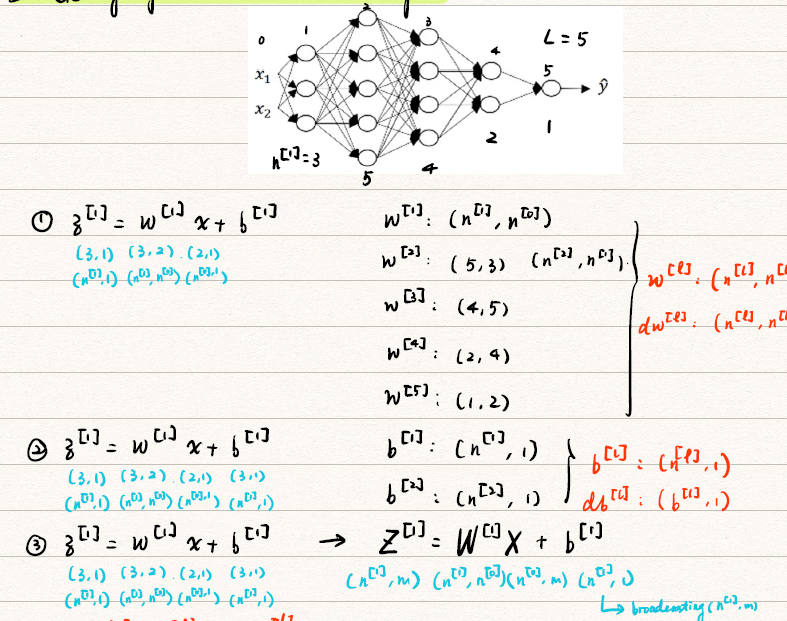 0 1 2 3 4 L = 5
x₁ 5 ŷ
x₂
n^[1] = 3 5 4 2 1
① z^[1] = w^[1] x + b^[1]
(3,1) (3,2) . (2,1)
(n^[1],1) (n^[1], n^[0]) (n^[0],1)
w^[1] : (n^[1], n^[0])
w^[2] : (5,3) (n^[2], n^[1]).
w^[3] : (4,5)
w^[4] : (2,4)
w^[5] : (1,2)
w^[l] : (n^[l], n^[l
dw^[l] : (n^[l], n^[l
② z^[1] = w^[1] x + b^[1]
(3,1) (3,2) . (2,1) (3,1)
(n^[1],1) (n^[1], n^[0]) (n^[0],1) (n^[1],1)
b^[1] : (n^[1], 1)
b^[2] : (n^[2], 1)
b^[l] : (n^[l], 1)
db^[l] : (b^[l], 1)
③ z^[1] = w^[1] x + b^[1] → Z^[1] = W^[1] X + b^[1]
(3,1) (3,2) . (2,1) (3,1)
(n^[1],1) (n^[1], n^[0]) (n^[0],1) (n^[1],1)
(n^[1], m) (n^[1], n^[0]) (n^[0], m) (n^[1], 1)
↳ broadcasting (n^[1], m)